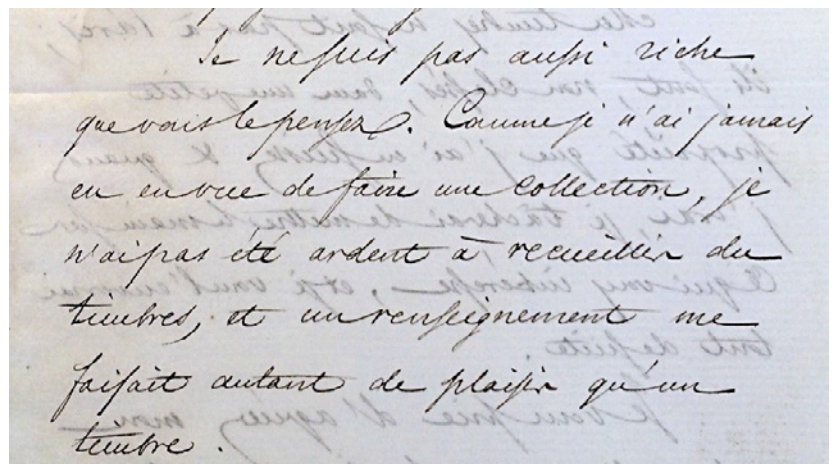 Je ne suis pas aussi riche
que vous le pensez. Comme je n'ai jamais
eu en vue de faire une collection, je
n'ai pas été ardent à recueillir du
timbres, et un renseignement me
faisait autant de plaisir qu'un
timbre.